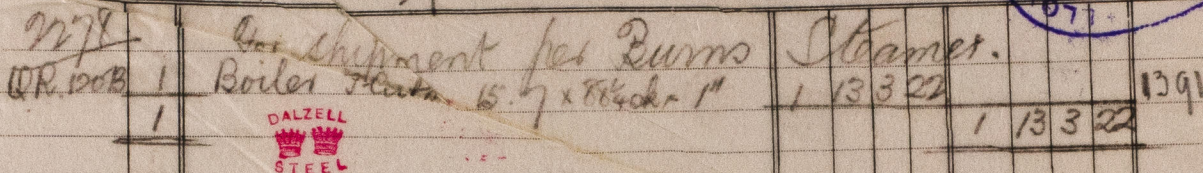 2278 For shipment per Burns Steamer.
QR.120B 1 Boiler Plate 15.7 x 88¼ x 1" 1 13 3 22 1391
1 1 13 3 22
DALZELL
STEEL